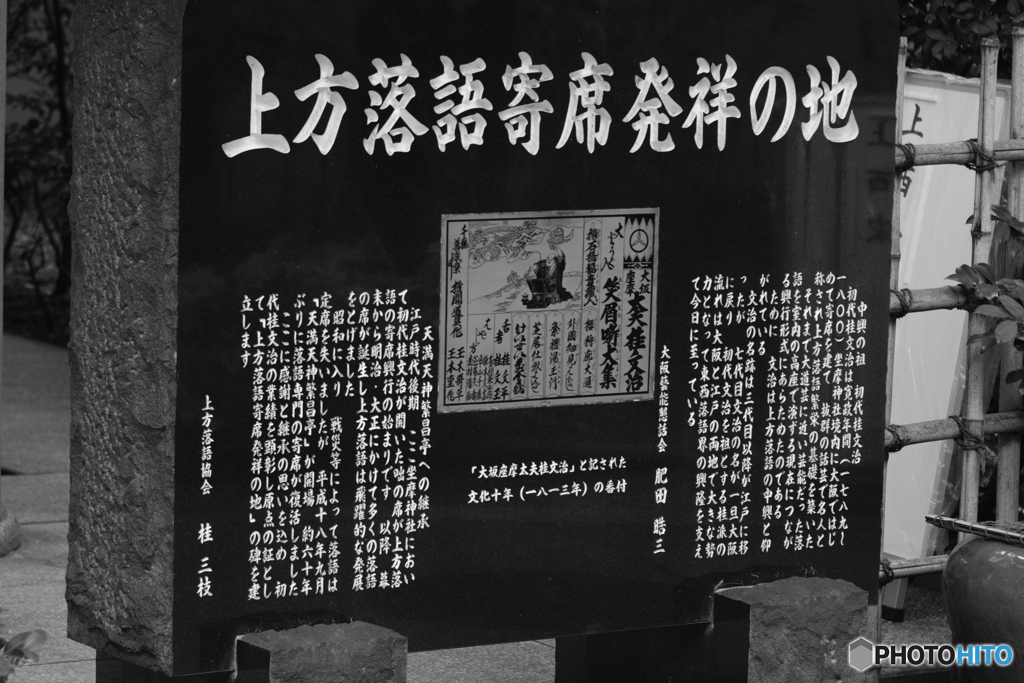 上方落語寄席発祥の地
中興の祖 初代桂文治
初代桂文治は寛政年間（一七八九～
一八〇〇）坐摩神社境内に大阪ではじ
めて寄席を建て 抜群の話芸で名人と
称され上方落語繁栄の基礎を築いた
それまで大道芸に近い芸能だった落
語を室内の高座で演ずる現在につなが
る興行形式にあらためたのである
ため 文治は上方落語の中興と仰
がれている
文治の名跡は三代目以降が江戸に移
ったが 七代目文治の名が一旦大阪
に戻り 初代文治を祖とする桂派の
流れは大阪と江戸の両地で大きな勢
力となって東西落語界の興隆を支え
て今日に至っている
大阪藝能懇話会 肥田 晧三
大坂
座摩
太夫桂文治
笑眉噺大集
「大坂座摩太夫桂文治」と記された
文化十年（一八一三年）の番付
天満天神繁昌亭への継承
江戸時代後期 ここ坐摩神社におい
て初代桂文治が開いた咄の席が上方落
語の寄席興行の始まりです 以降 幕
末から明治・大正にかけて多くの落語
の席が誕生し上方落語は飛躍的な発展
をとげました
昭和に入り 戦災等によって落語は
定席を失いましたが 平成十八年九月
「天満天神繁昌亭」が開場 約六十年
ぶりに落語専門の寄席が復活しました
ここに感謝と継承の思いを込め 初
代桂文治の業績を顕彰し原点の証とし
て「上方落語寄席発祥の地」の碑を建
立します
上方落語協会 桂 三枝
上
PHOTOHITO